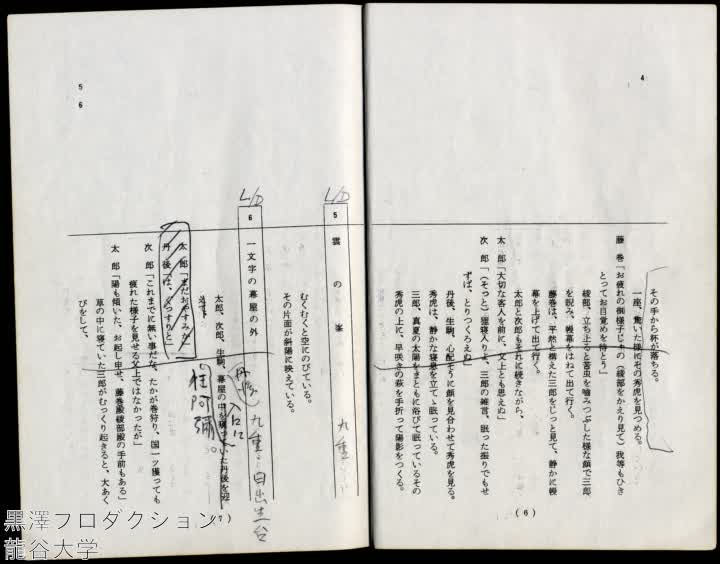 4
その手から杯が落ちる。
一座、驚いた様にその秀虎を見つめる。
藤 巻「お疲れの御様子じゃの（綾部をかえり見て）我等もひき
とってお目覚めを待とう」
綾部、立ち上ると苦虫を噛みつぶした様な顔で三郎
を睨み、帷幕をはねて出て行く。
藤巻は、平然と構えた三郎をじっと見て、静かに帷
幕を上げて出て行く。
太郎と次郎もそれに続きながら、
太 郎「大切な客人を前に、父上とも思えぬ」
次 郎「（そっと）狸寝入りよ、三郎の雑言、眠った振りでもせ
ずば、とりつくろえぬ」
丹後、生駒、心配そうに顔を見合わせて秀虎を見る。
秀虎は、静かな寝息を立てて眠っている。
三郎、真夏の太陽をまともに浴びて眠っているその
秀虎の上に、早咲きの萩を手折って陽影をつくる。
(6)
5
6
L/D
5 雲の峯
九重
むくむくと空にのびている。
その片面が斜陽に映えている。
L/D
6 一文字の幕屋の外
九重・自出生台
太郎、次郎、生駒、幕屋の中を
丹後を迎
丹後
入口に
太 郎「まだおやすみか」
丹 後「は、ぐっすりと」
次 郎「これまでに無い事だな、たかが巻狩り、国一ツ獲っても
疲れた様子を見せる父上ではなかったが」
太 郎「陽も傾いた、お起し申せ、藤巻殿綾部殿の手前もある」
草の中に寝ていた三郎がむっくり起きると、大あく
びをして、
(7)
黒澤プロダクション
龍谷大学